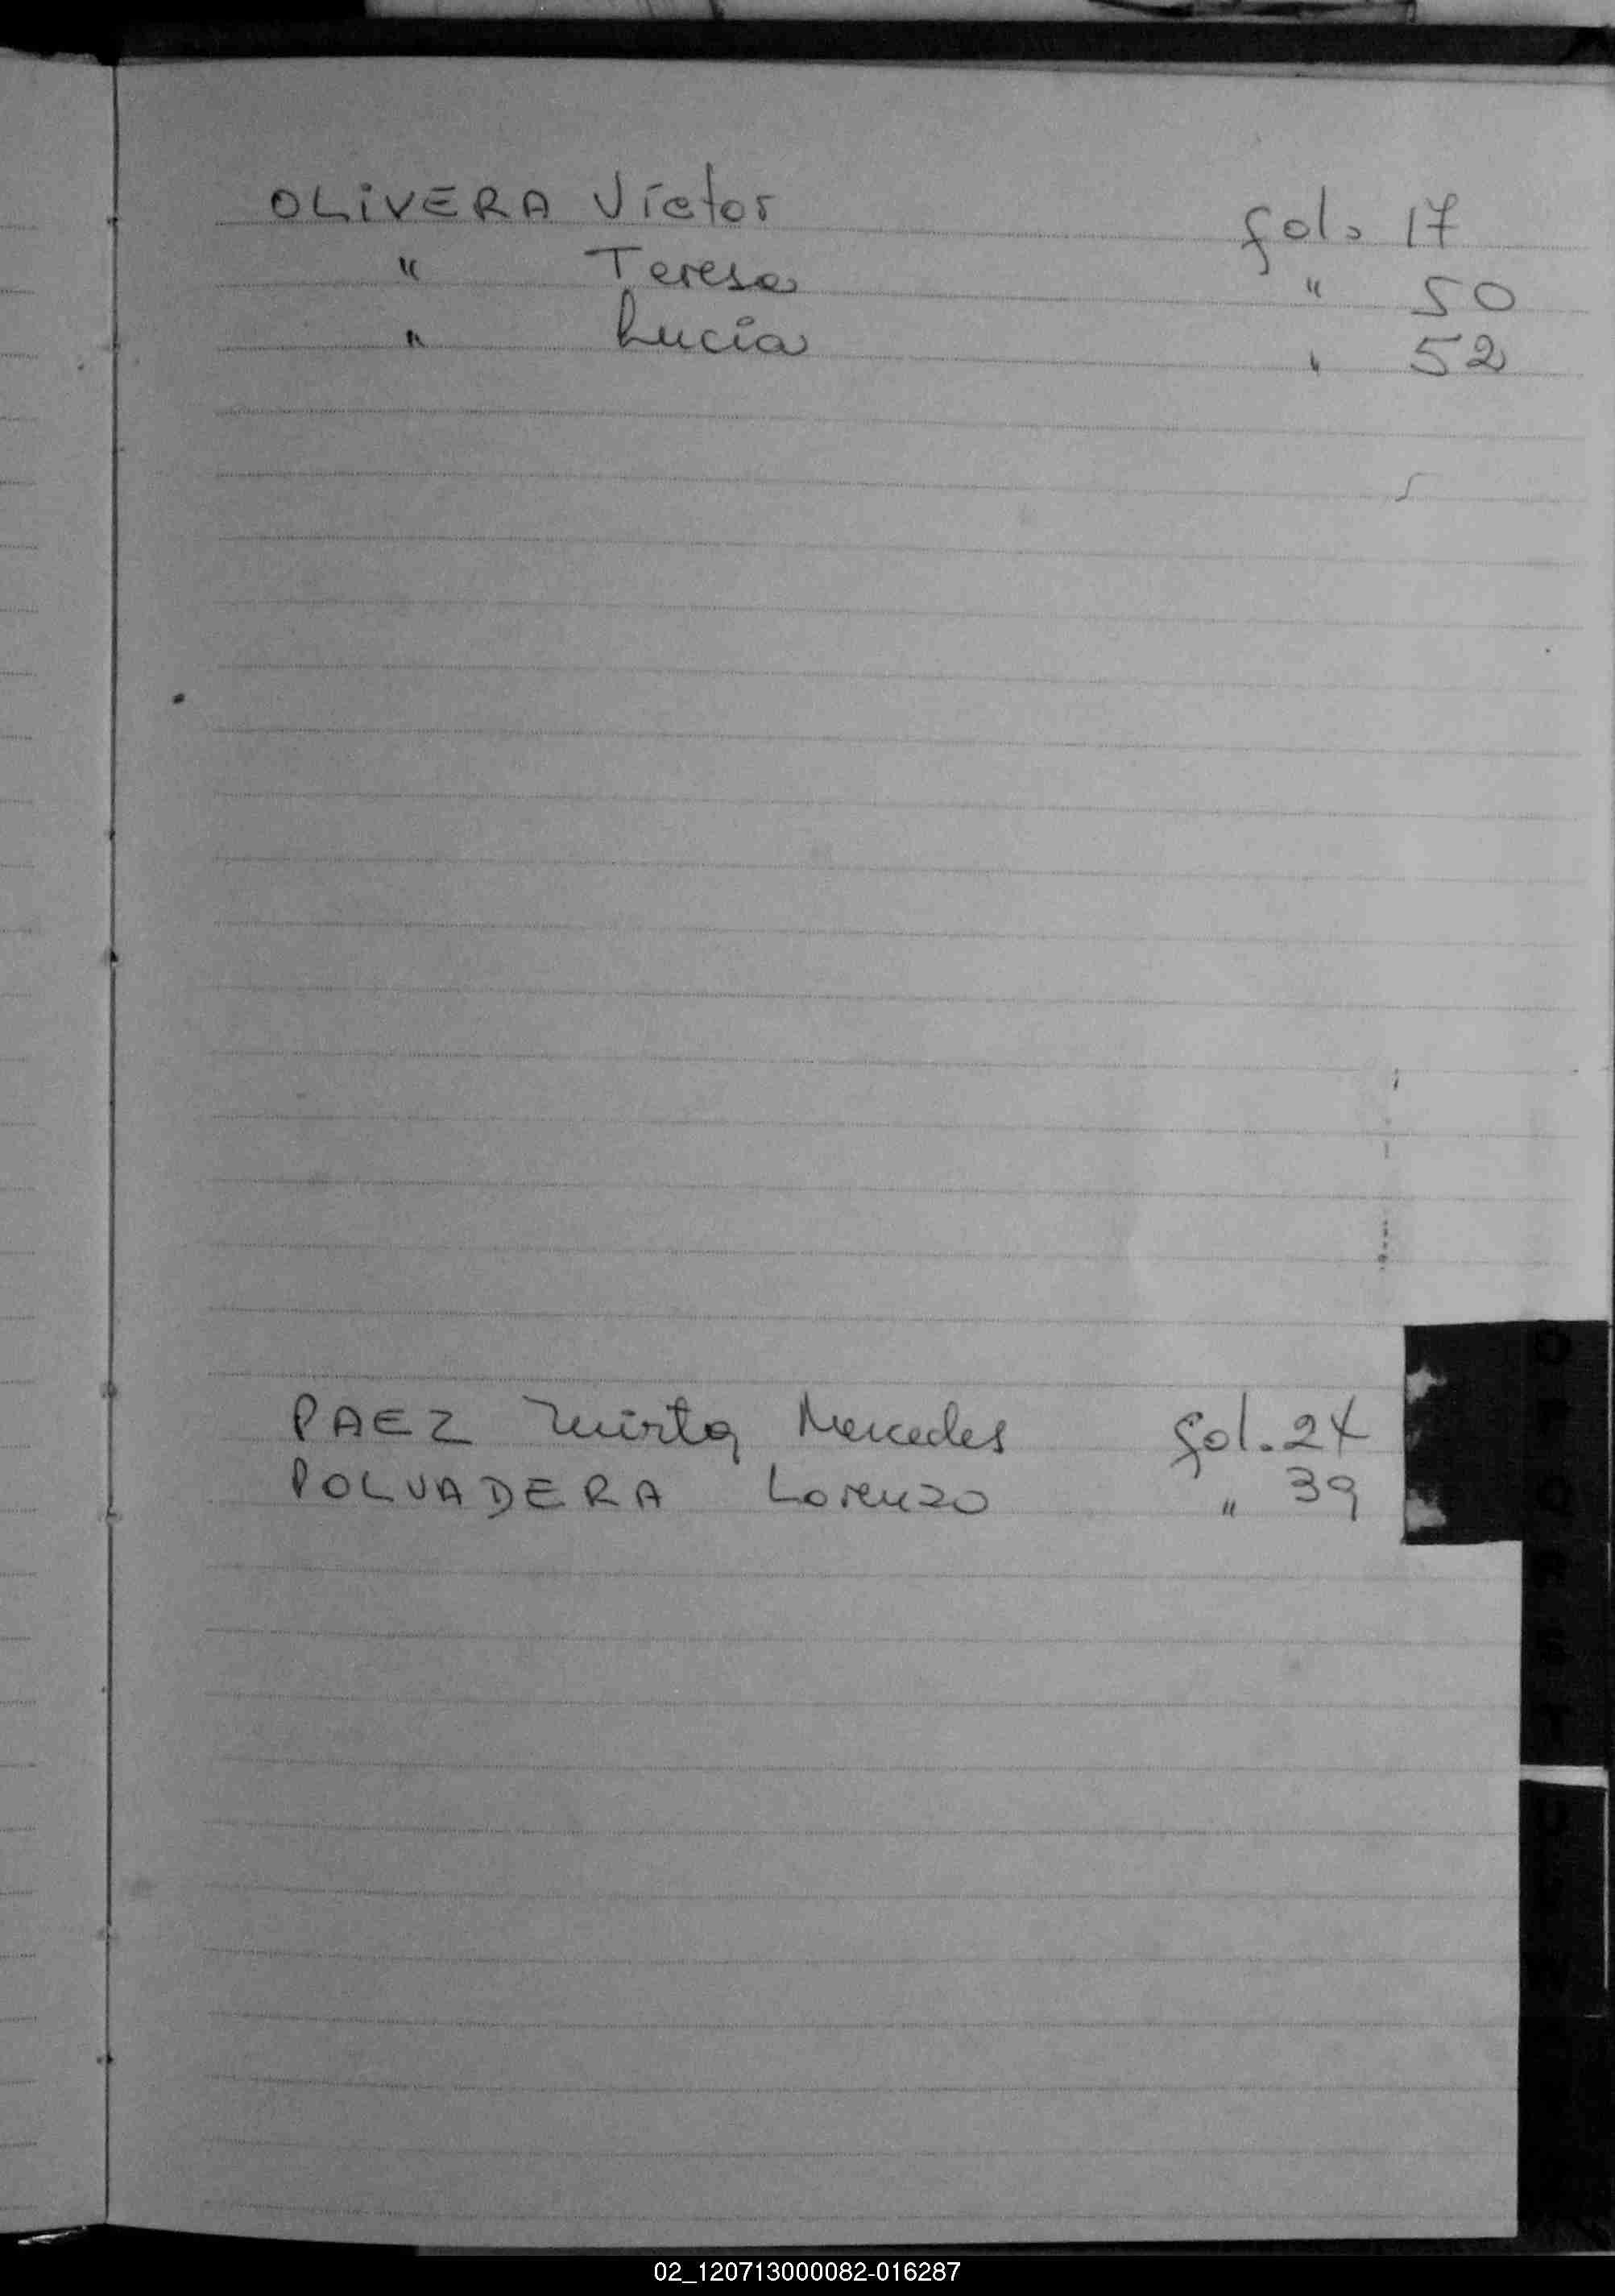 OLiVERA Víctor fol. 17
" Teresa " 50
" Lucía " 52
PAEZ Mirta Mercedes fol. 24
POLVADERA Lorenzo " 39
02_120713000082-016287